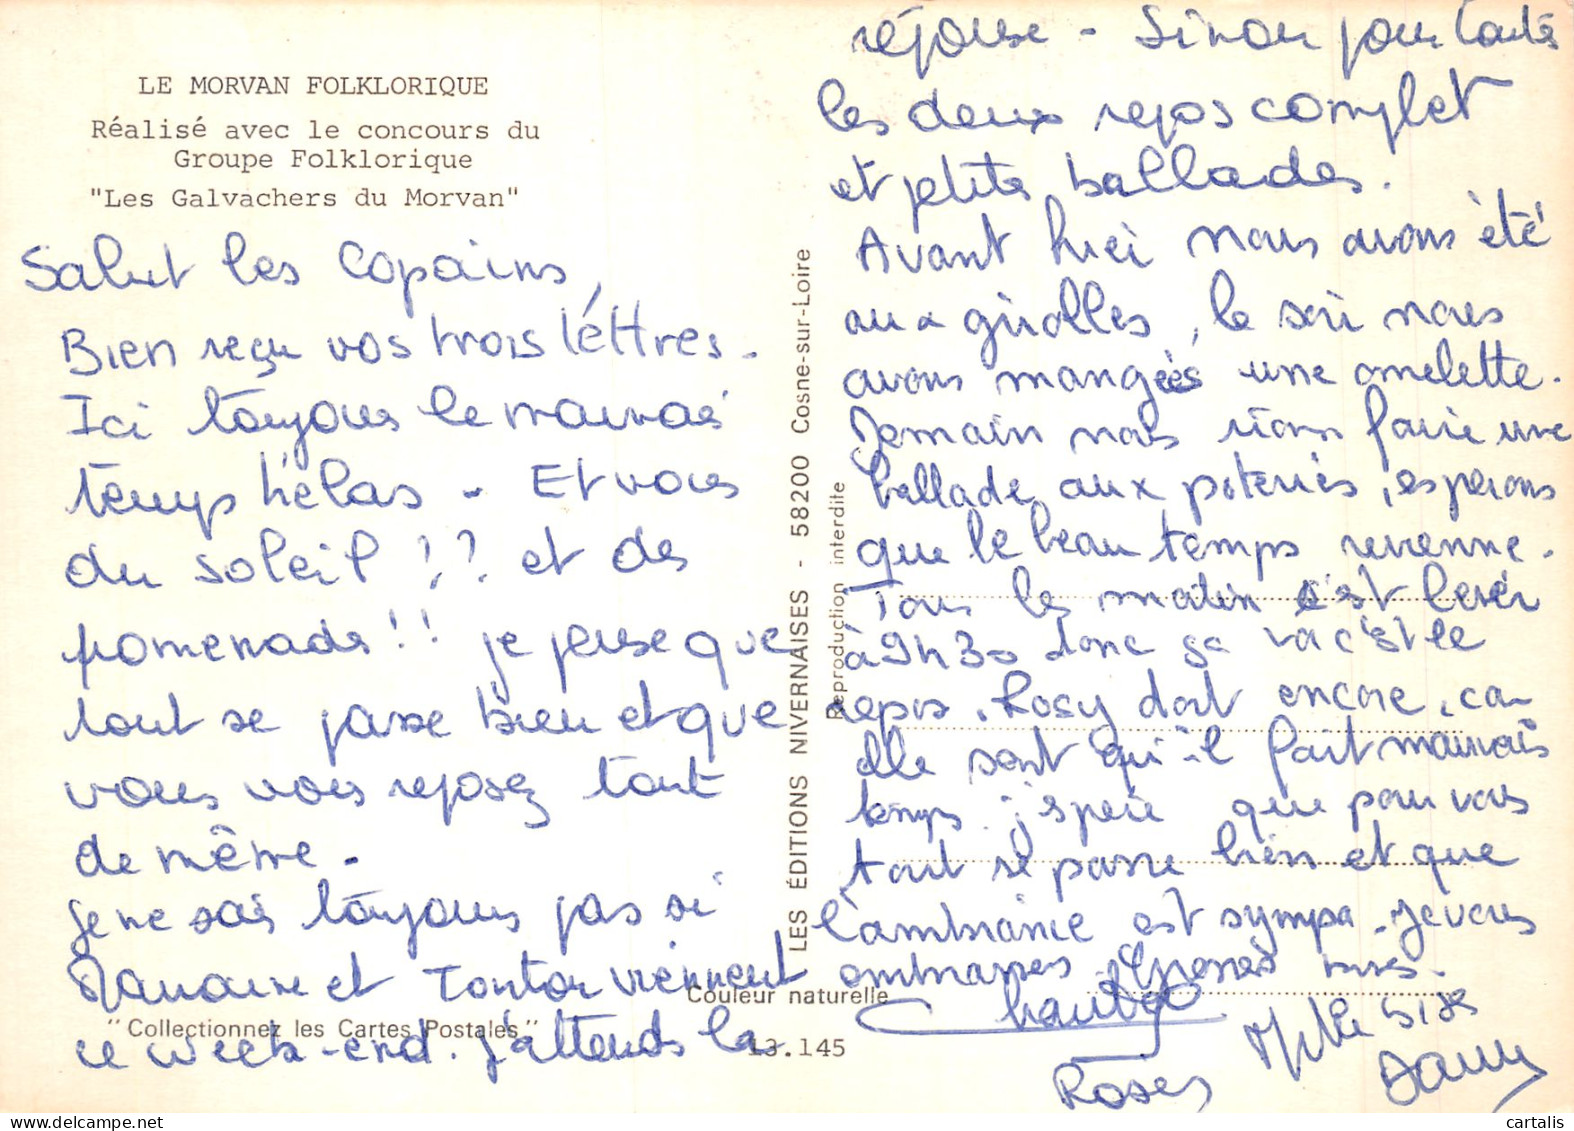 LE MORVAN FOLKLORIQUE
Réalisé avec le concours du
Groupe Folklorique
"Les Galvachers du Morvan"
Salut les copains,
Bien reçu vos trois léttres.
Ici toujours le mauvais
temps hélas - Et vous
du soleil ?? et des
promenade !! je pense que
tout se passe bien et que
vous vous reposez tout
de même -
je ne sais toujours pas si
et Tonton viennent
ce week-end. j'attends la
"Collectionnez les Cartes Postales"
Couleur naturelle
13.145
LES ÉDITIONS NIVERNAISES - 58200 Cosne-sur-Loire
Reproduction interdite
réponse - Sinon pour toutes
les deux repos complet
et petite ballades.
Avant hier nous avons été
aux girolles, le soir nous
avons mangées une omelette.
Demain nous irons faire une
ballade aux poteries, esperons
que le beau temps revienne.
Tous les matin c'est lever
à 9h30 donc sa va c'est le
repos. Rosy dort encore, car
elle sent qu'il fait mauvais
temps. j'espère que pour vous
tout se passe bien et que
l'ambiance est sympa. Je vous
embrasses. Grosses bises.
Roses
Mille Bises